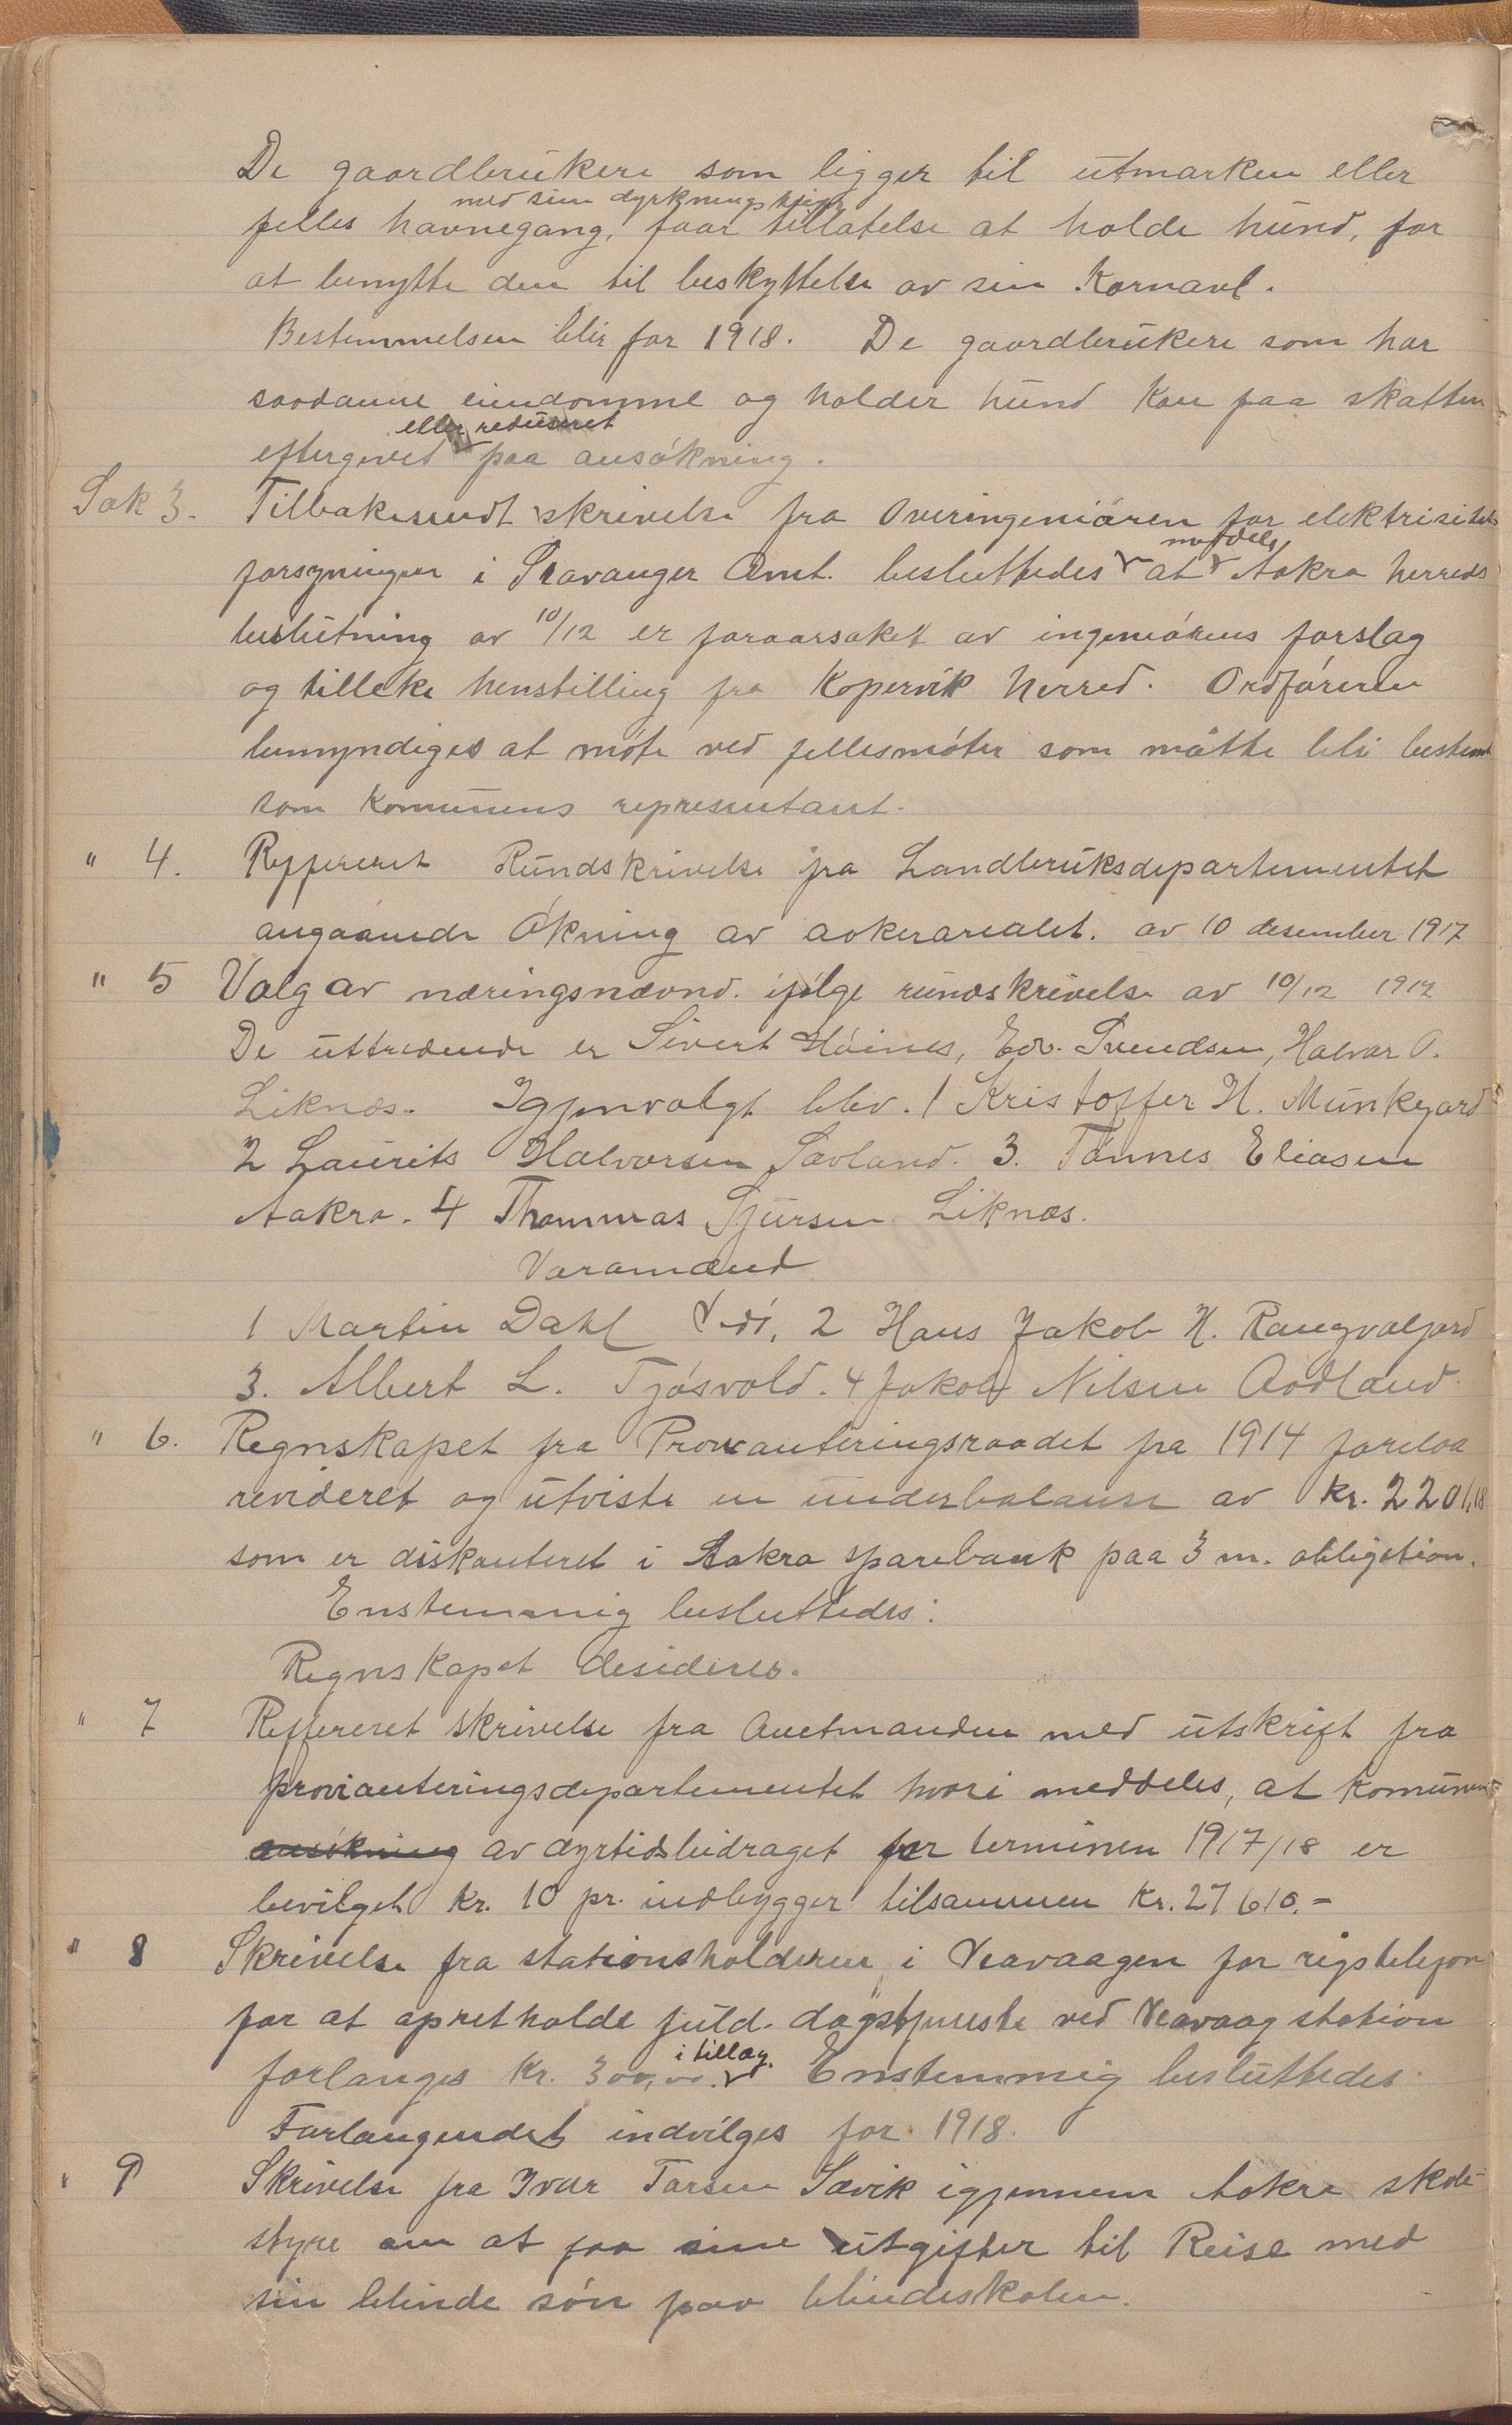 De gaardbrukere som ligger til utmarken eller
med sin dyrknings
felles havnegang, faar tillatelse at holde hund, for
at benytte den til beskyttelse av sin Kornavl.
Bestemmelsen blir for 1918. De gaardbrukere som har
saadanne eiendomme og holder hund kan faa skatten
eller reduseret
eftergivet paa ansökning.
Sak 3. Tilbakesendt skrivelse fra Overingeniören for elektrisitets
meddels
forsyningen i Stavanger Amt. besluttedes at Aakra herreds
beslutning av 10/12 er foraarsaket av ingeniörens forslag
og tilleke henstilling fra Kopervik herred. Ordföreren
bemyndiges at möte ved fellesmöter som måtte bli bestemt
som Komunens representant.
" 4. Reffereret Rundskrivelse fra Landbruksdepartementet
angaaende Ökning av aakerarealet. av 10 desember 1917
" 5 Valg av næringsnævnd. ifölge rundskrivelse av 10/12 1917
De uttredende er Sivert Höines, Edv. Svendsen, Halvar O.
Liknæs. Igjenvalgt blev. 1 Kristoffer H. Munkejord
2 Laurits Halvorsen Sævland. 3. Tönnes Eliasen
Aakra. 4 Thommas Sjursen Liknæs.
Varamænd
1 Martin Dahl Vedö, 2 Hans Jakob H. Rangvaljord
3. Albert L. Tjösvold. 4 Jakob Nilsen Aadland.
" 6. Regnskapet fra Provianteringsraadet fra 1914 forelaa
revideret og utviste en underbalanse av Kr. 2201,18
som er diskonteret i Aakra sparebank paa 3 m. obligation.
Enstemmig besluttedes:
Regnskapet desideres.
" 7 Reffereret skrivelse fra Amtmanden med utskrift fra
provianteringsdepartementet hvori meddeles, at komunen
ansökning av dyrtidsbidraget for terminen 1917/18 er
bevilget kr. 10 pr. indbygger tilsammen Kr. 27610.-
" 8 Skrivelse fra stationsholderen i Veavaagen for rigstelefon
for at opretholde fuld dagstjeneste ved Veavaag station
i tillæg.
forlanges Kr. 300,00. Enstemmig besluttedes
Forlangendet indvilges for 1918.
" 9 Skrivelse fra Ivar Tarsen Sævik igjennem Aakra skole-
styre om at faa sine utgifter til Reise med
sin blinde sön paa blindeskolen.